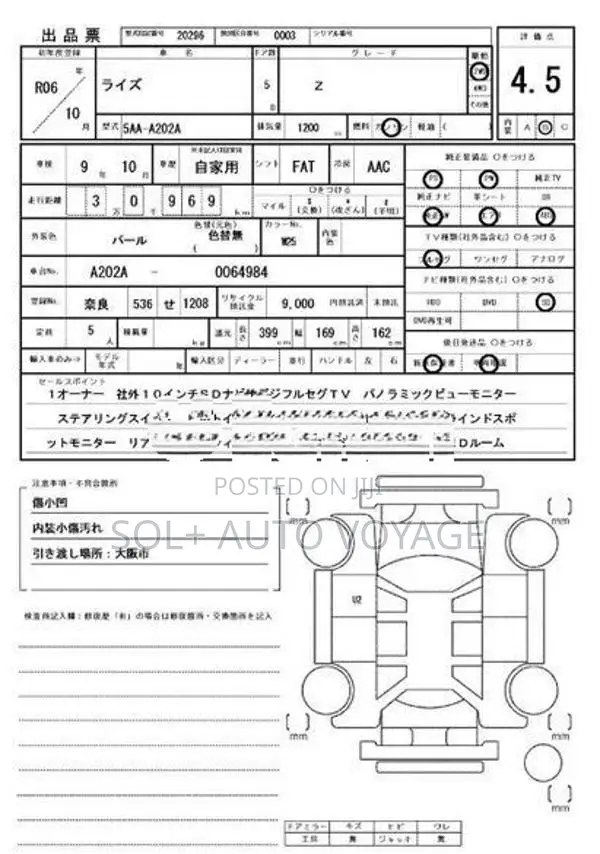 出品票 型式指定番号 20296 類別区分番号 0003 シリアル番号
初年度登録 車名 ドア数 グレード 駆動 評価点
R06 年 ライズ 5 Z 4.5
10 月 D その他
型式 5AA-A202A 排気量 1200 燃料 ガソリン 軽油 ( ) 内装 A B C
車検 9 年 10 月 車歴 自家用 シフト FAT 冷房 AAC 純正装備品 ○をつける
PS PW 純正TV
走行距離 3 万 0 千 9 6 9 km マイル $ (交換) * (改ざん) # (不明) ○をつける 純正ナビ 革シート SR
外装色 パール 色替(元色) 色替無 ( ) カラーNo. W25 内装色 TV種類(社外品含む) ○をつける
フルセグ ワンセグ アナログ
車台No. A202A - 0064984 ナビ種類(社外品含む) ○をつける
登録No. 奈良 536 せ 1208 リサイクル預託金 9,000 円預託済 未預託 HDD DVD SD
DVD再生可
定員 5 人 積載量 kg 諸元 長さ 399 幅 169 高さ 162 後日発送品 ○をつける
輸入車のみ→ モデル年式 年 輸入区分 ディーラー 並行 ハンドル 左 右
セールスポイント
1オーナー 社外10インチSDナビ フルセグTV パノラミックビューモニター
ステアリングスイ インドスポ
ットモニター リア Dルーム
POSTED ON JIJI
SOL+ AUTO VOYAGE
注意事項・不具合箇所
傷小凹
内装小傷汚れ
引き渡し場所:大阪市
検査員記入欄:修復歴「有」の場合は修復箇所・交換箇所を記入
U2
[ ] mm
[ ] mm
[ ] mm
[ ] mm
[ ] mm
ドアミラー キズ ヒビ ワレ
工具 無 ジャッキ 無